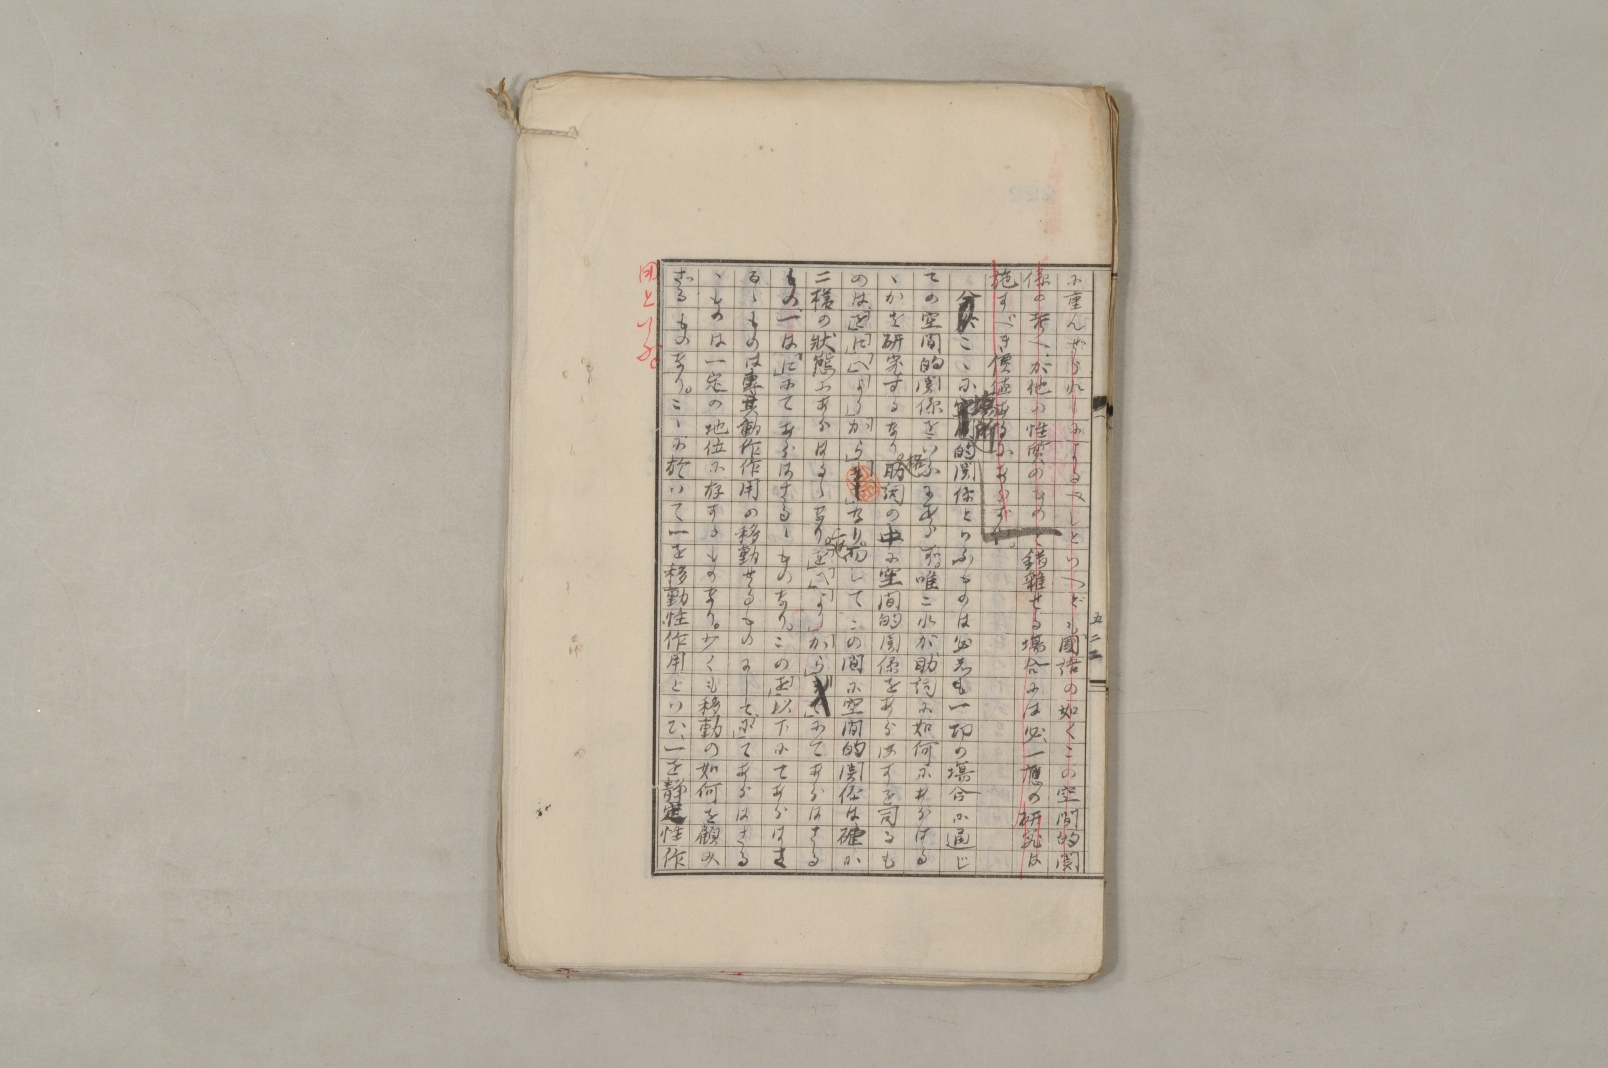 に重んぜられしによるべしといへども國語の如くこの空間的関
係の考へが他の性質のものと錯雜せる場合には必、一應の研究は
施すべき價値あるにあらずや。
こゝに場所的関係といふものは必しも一切の場合に通じ
ての空間的関係をいふにあらず、唯これが助詞に如何にあらはる
ゝかを研究するなり。格助詞の中に空間的関係をあらはすを司るも
のは「を」「に」「へ」「より」「から」なり。而してこの間に空間的関係は確に
二様の状態にあらはるゝなり。「を」「へ」「より」「から」にてあらはさるゝ
もの一は「に」にてあらはさるゝものなり。この「を」以下にてあらはさ
るゝものは專其動作作用の移動せるものにして「に」てあらはさる
ゝものは一定の地位に存するものなり。少くも移動の如何を顧み
ざるものなり。こゝに於いて一を移動性作用といひ、一を静定性作
用といふ。
五二二